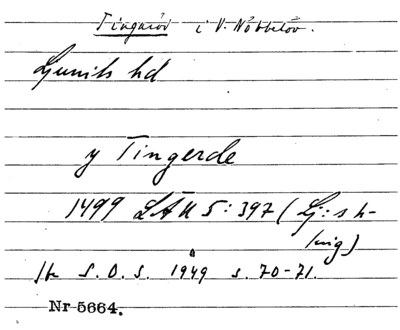 Tingaröd i V. Nöbbelöv.
Ljunits hd
y Tingerde
1499 LÄU 5:397 (Lj:s h-
ling)
Jfr S.O.S. 1949 s. 70-71.
Nr 5664.